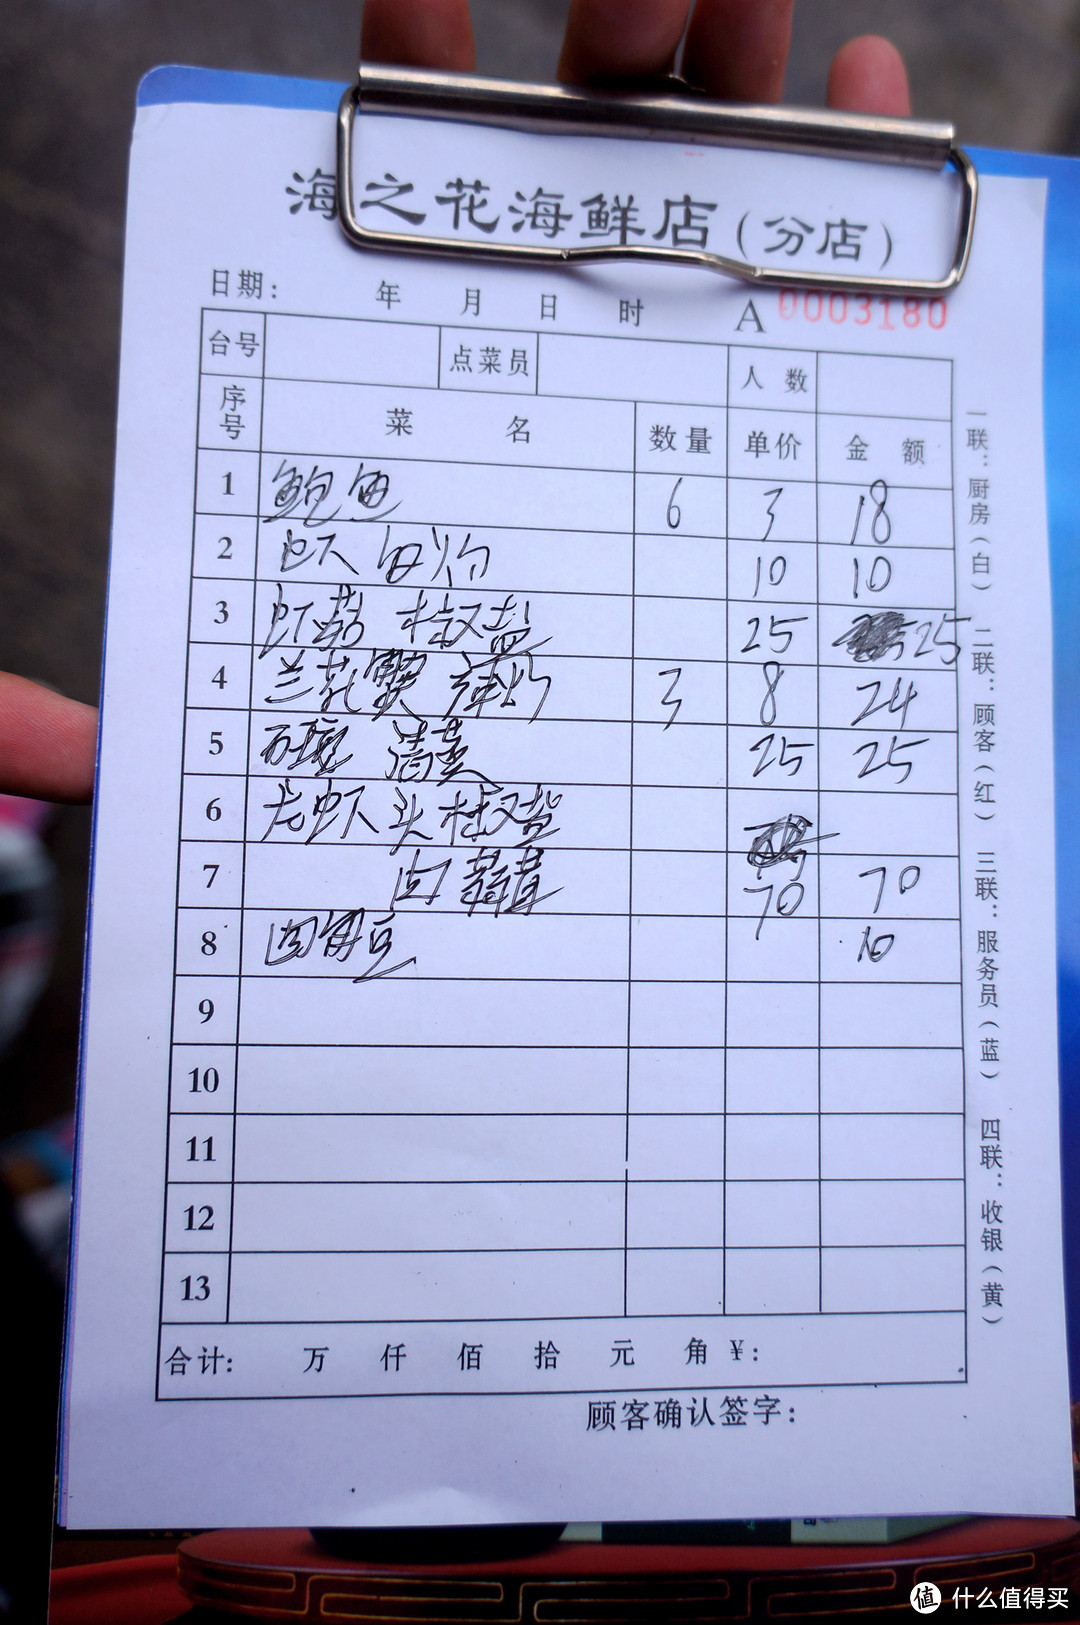 海之花海鲜店(分店)
日期: 年 月 日 时 A 0003180
台号 点菜员 人数
序号 菜名 数量 单价 金额
1 鲍鱼 6 3 18
2 虾 10 10
3 虾菇 椒盐 25 25
4 兰花 3 8 24
5 清蒸 25 25
6 龙虾头椒盐
7 肉 70 70
8 四角豆 10
9
10
11
12
13
合计: 万 仟 佰 拾 元 角 ¥:
顾客确认签字:
一联:厨房(白) 二联:顾客(红) 三联:服务员(蓝) 四联:收银(黄)
值 什么值得买